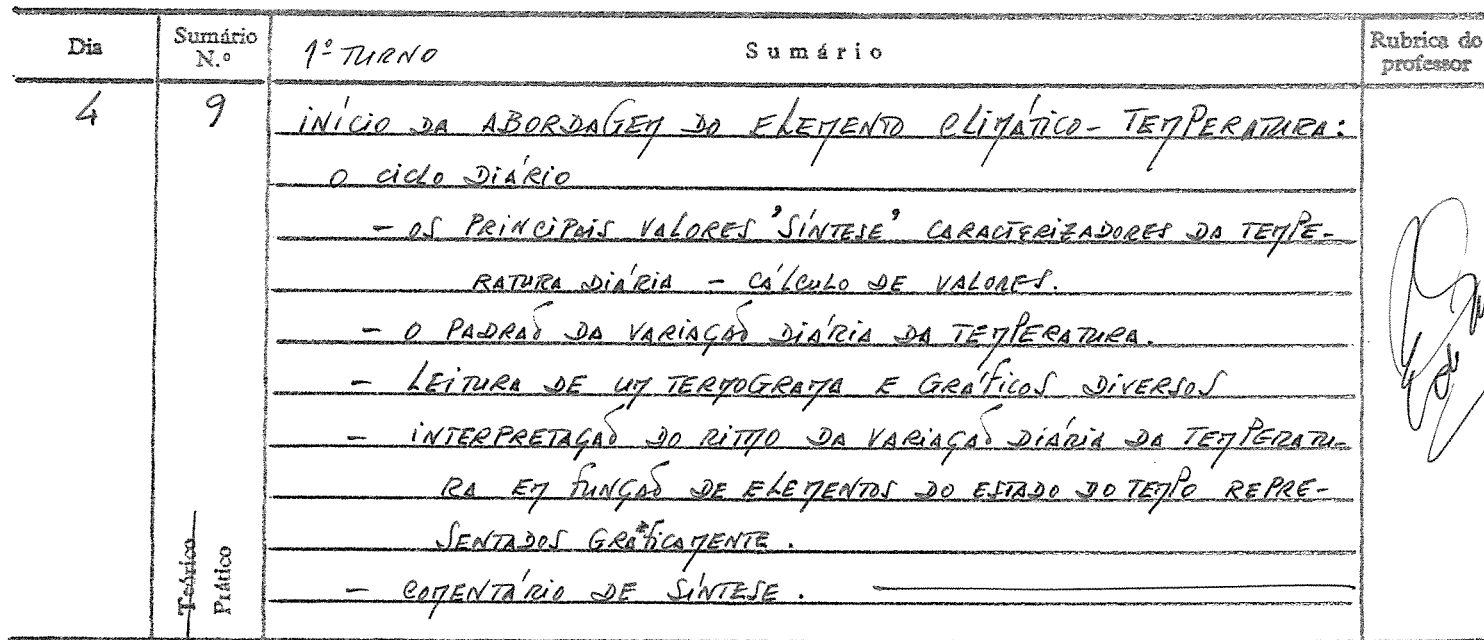 Dia
Sumário N.º
1º TURNO
Sumário
Rubrica do professor
4
9
INÍCIO DA ABORDAGEM DO ELEMENTO CLIMÁTICO - TEMPERATURA:
O CICLO DIÁRIO
- OS PRINCIPAIS VALORES 'SÍNTESE' CARACTERIZADORES DA TEMPE-
RATURA DIÁRIA - CÁLCULO DE VALORES.
- O PADRÃO DA VARIAÇÃO DIÁRIA DA TEMPERATURA.
- LEITURA DE UM TERMOGRAMA E GRÁFICOS DIVERSOS
- INTERPRETAÇÃO DO RITMO DA VARIAÇÃO DIÁRIA DA TEMPERATU-
RA EM FUNÇÃO DE ELEMENTOS DO ESTADO DO TEMPO REPRE-
SENTADOS GRÁFICAMENTE.
- COMENTÁRIO DE SÍNTESE.
Teórico
Prático